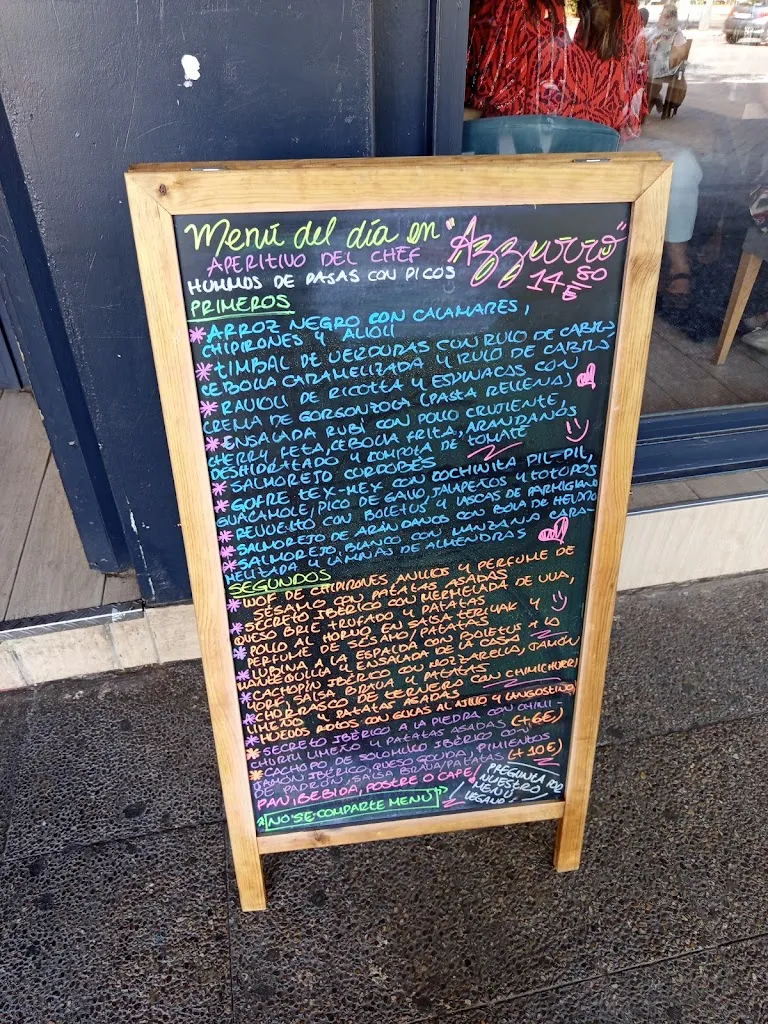 Menú del día en "Azzurro"
APERITIVO DEL CHEF 14'80 €
HUMMUS DE PASAS CON PICOS
PRIMEROS
* ARROZ NEGRO CON CALAMARES,
CHIPIRONES Y ALIOLI
* TIMBAL DE VERDURAS CON RULO DE CABRA
CEBOLLA CARAMELIZADA Y RULO DE CABRA
* RAVIOLI DE RICOTTA Y ESPINACAS CON
CREMA DE GORGONZOLA (PASTA RELLENA)
* ENSALADA RUBÍ CON POLLO CRUJIENTE,
CHERRY, FETA, CEBOLLA FRITA, ARANDANOS
DESHIDRATADO Y COMPOTA DE TOMATE
* SALMOREJO CORDOBÉS
* GOFRE TEX-MEX CON COCHINITA PIL-PIL,
GUACAMOLE, PICO DE GALLO, JALAPEÑOS Y TOTOPOS
* REVUELTO CON BOLETUS Y LASCAS DE PARMIGIANO
* SALMOREJO DE ARÁNDANOS CON BOLA DE HELADO
* SALMOREJO BLANCO CON MANZANA CARA-
MELIZADA Y LAMINAS DE ALMENDRAS
SEGUNDOS
* WOF DE CHIPIRONES, ANILLAS Y PERFUME DE
SÉSAMO CON PATATAS ASADAS
* SECRETO IBÉRICO CON MERMELADA DE UVA,
QUESO BRIE TRUFADO Y PATATAS
* POLLO AL HORNO EN SALSA TERIYAKI Y
PERFUME DE SÉSAMO/PATATAS
* LUBINA A LA ESPALDA CON BOLETUS A LA
MANTEQUILLA Y ENSALADA DE LA CASA
* CACHOPÍN IBÉRICO CON MOZZARELLA, JAMÓN
YORK, SALSA BRAVA Y PATATAS
* CHURRASCO DE TERNERA CON CHIMICHURRI
LIMEÑO Y PATATAS ASADAS
* HUEVOS ROTOS CON GULAS AL AJILLO Y LANGOSTINO
* SECRETO IBÉRICO A LA PIEDRA CON CHIMI-
CHURRI LIMEÑO Y PATATAS ASADAS (+6€)
* CACHOPO DE SOLOMILLO IBÉRICO CON
JAMÓN IBÉRICO, QUESO GOUDA, PIMIENTOS
DE PADRÓN, SALSA BRAVA/PATATAS (+10€)
PAN, BEBIDA, POSTRE O CAFÉ
* NO SE COMPARTE MENÚ
¡PREGUNTA POR
NUESTRO
MENÚ
VEGANO!